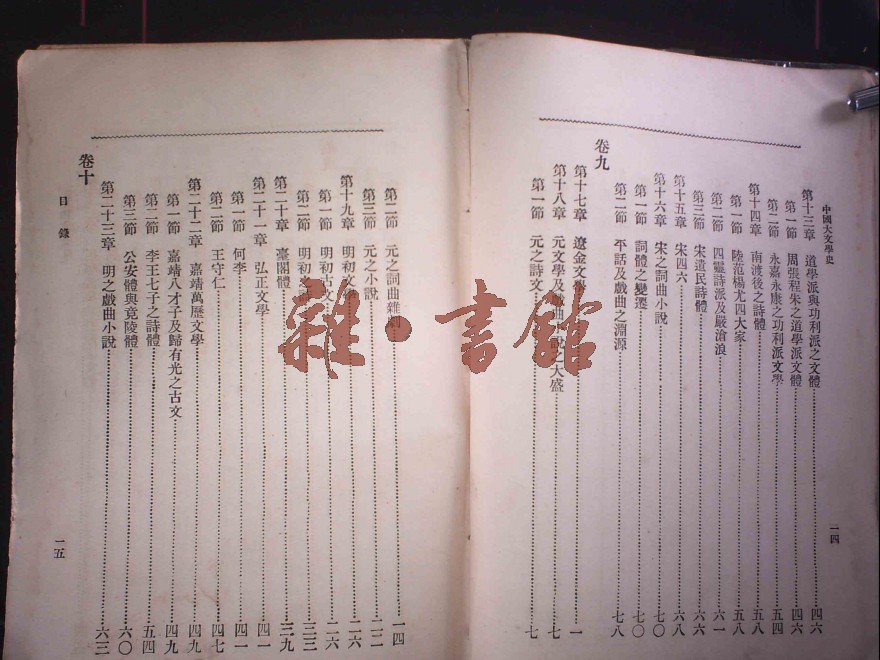 中國大文學史
一四
第十三章 道學派與功利派之文體 四六
第一節 周張程朱之道學派文體 四六
第二節 永嘉永康之功利派文學 五四
第十四章 南渡後之詩體 五八
第一節 陸范楊尤四大家 五八
第二節 四靈詩派及嚴滄浪 六一
第三節 宋遺民詩體 六六
第十五章 宋四六 六八
第十六章 宋之詞曲小說 七〇
第一節 詞體之變遷 七〇
第二節 平話及戲曲之淵源 七八
卷九
第十七章 遼金文學 一
第十八章 元文學及戲曲小說之大盛 七
第一節 元之詩文 七
第二節 元之詞曲雜劇 一四
第三節 元之小說 二二
第十九章 明初文學 二六
第一節 明初古文 二六
第二節 明初之詩 三三
第二十章 臺閣體 三九
第二十一章 弘正文學 四一
第一節 何李 四一
第二節 王守仁 四七
第二十二章 嘉靖萬歷文學 四九
第一節 嘉靖八才子及歸有光之古文 四九
第二節 李王七子之詩體 五四
第三節 公安體與竟陵體 六〇
第二十三章 明之戲曲小說 六三
卷十
目錄
一五
雜·書館